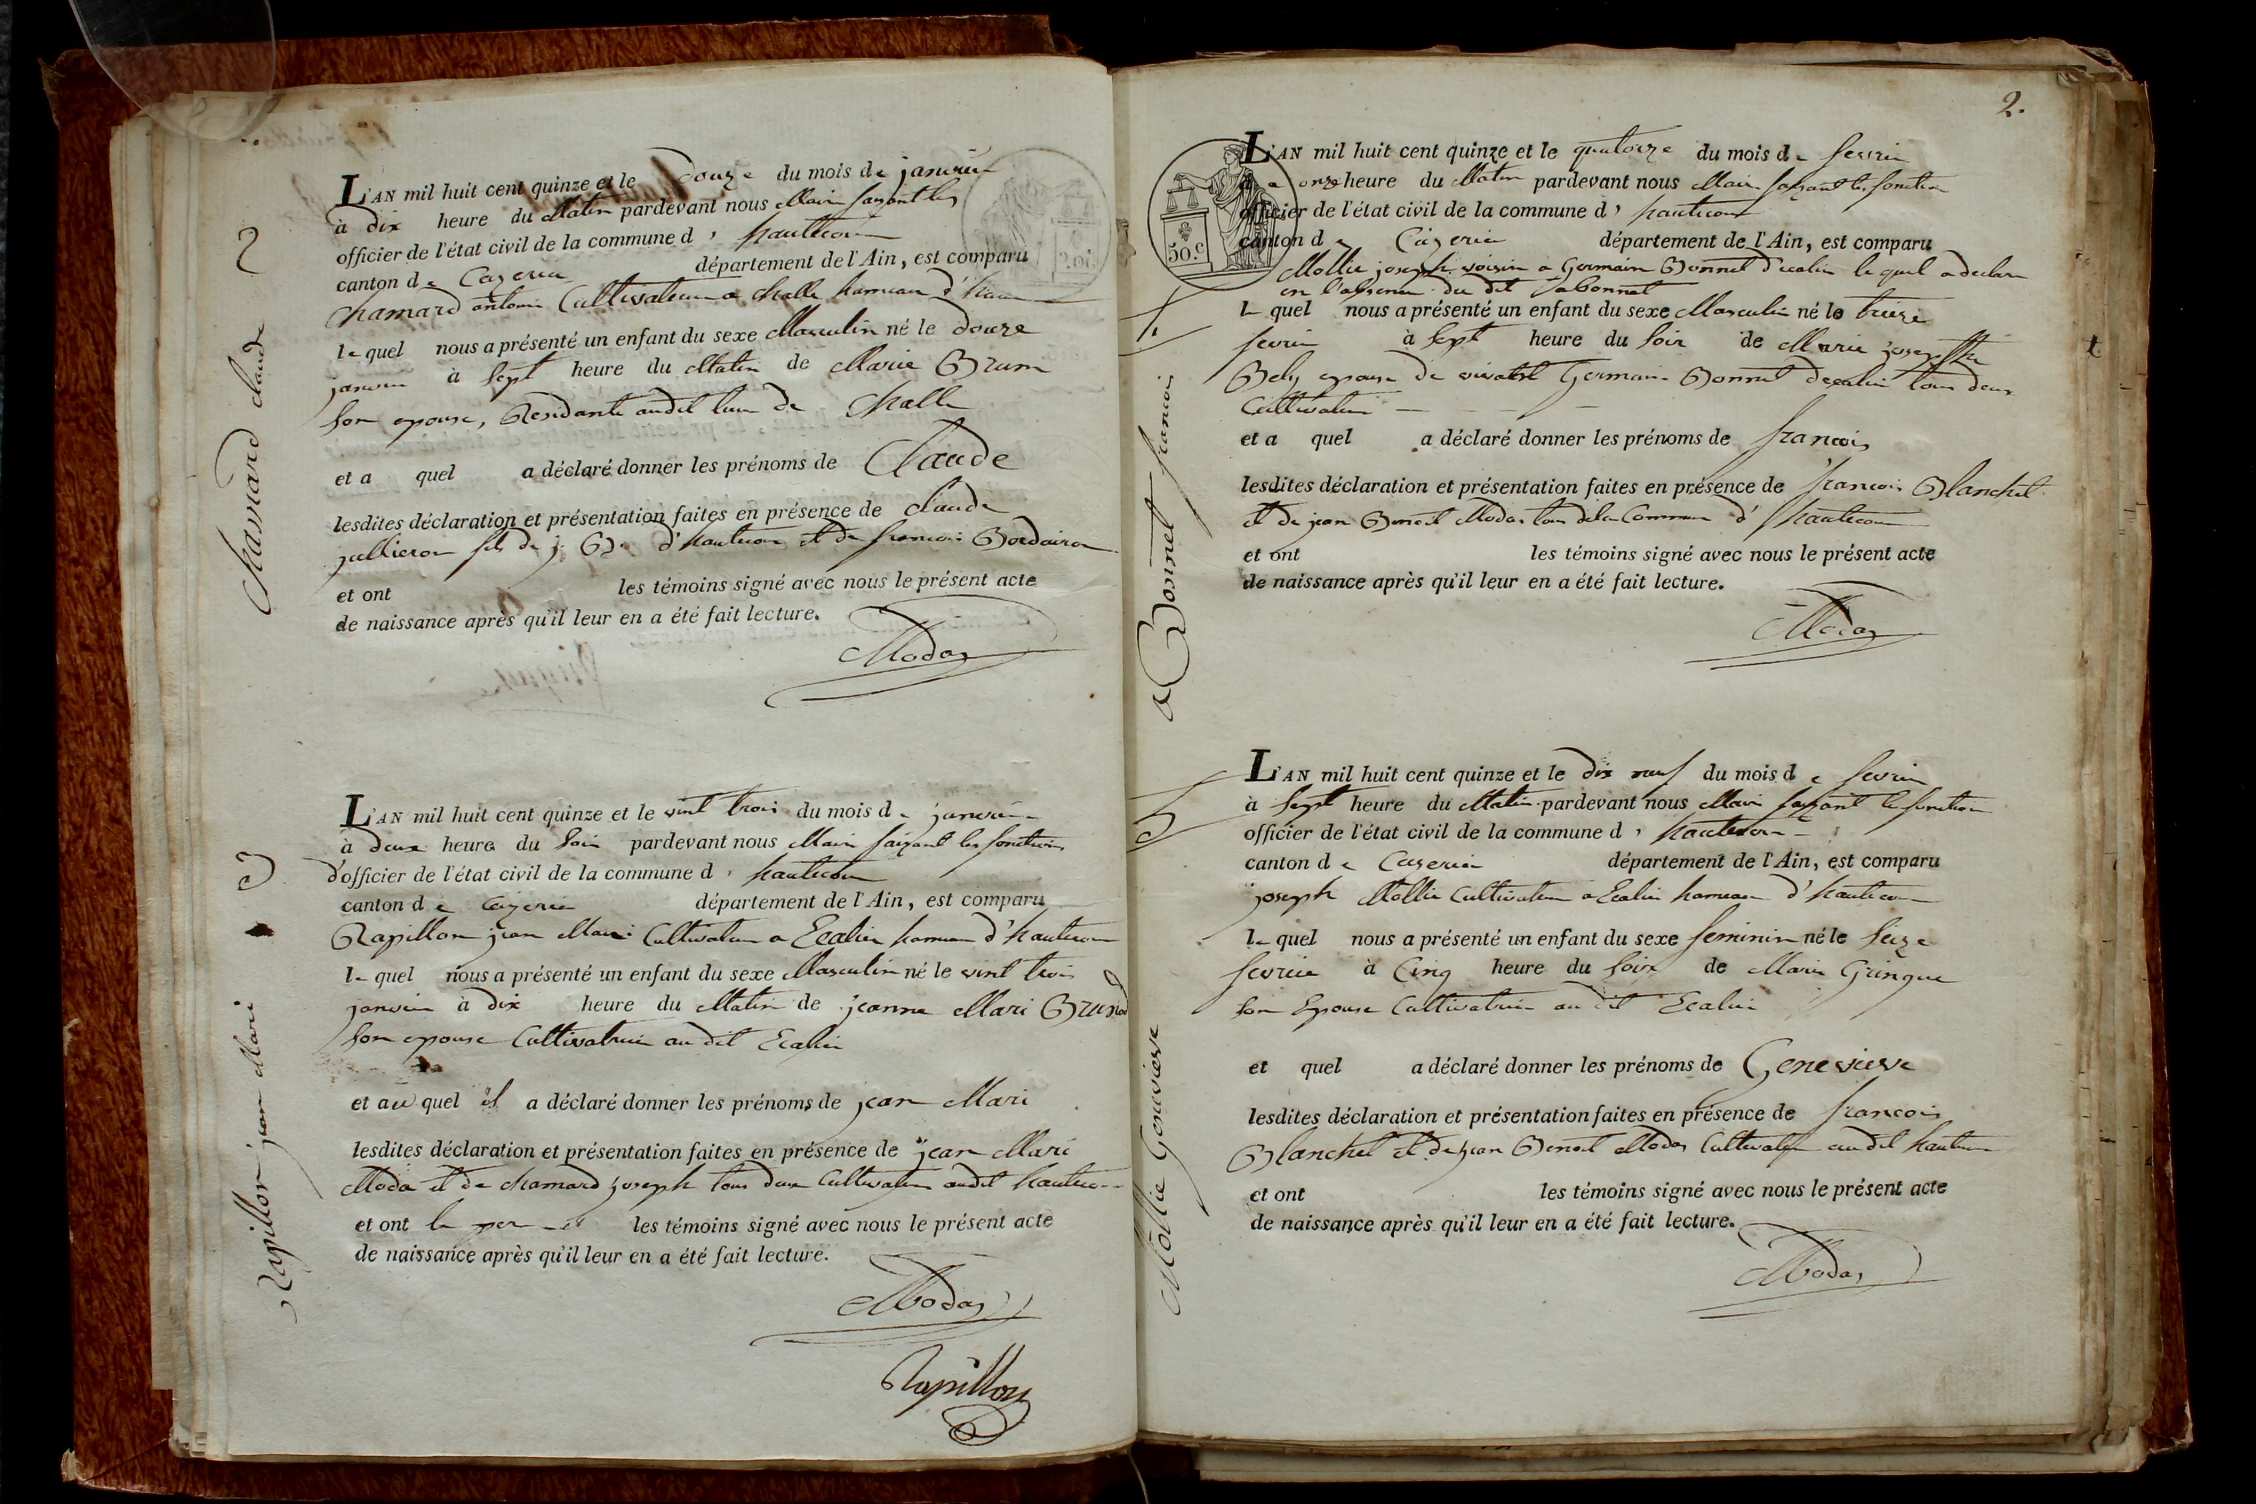 2
chamard claude
L'AN mil huit cent quinze et le douze du mois de janvier
à dix heure du Matin pardevant nous Maire faisant les
officier de l'état civil de la commune d' hautecour
canton de Cazeria département de l'Ain, est comparu
chamard antoine Cultivateur a challe hameau d'
le quel nous a présenté un enfant du sexe Masculin né le douze
janvier à Sept heure du Matin de Marie Brun
Son epouse, Residante audit lieu de Challe
et a quel a déclaré donner les prénoms de Claude
lesdites déclaration et présentation faites en présence de claude
jullieron fils de j. d'hautecour et de francois
et ont les témoins signé avec nous le présent acte
de naissance après qu'il leur en a été fait lecture.
Modas
3
Rapillon jean Mari
L'AN mil huit cent quinze et le vint trois du mois de janvier
à deux heure du Soir pardevant nous Maire faizant les fonctions
d'officier de l'état civil de la commune d' hautecour
canton de Cazeria département de l'Ain, est comparu
Rapillon jean Mari Cultivateur a Ecalie hameau d'hautecour
le quel nous a présenté un enfant du sexe Masculin né le vint trois
janvier à dix heure du Matin de jeanne Mari
Son epouse Cultivatrice au dit Ecalie
et au quel il a déclaré donner les prénoms de jean Mari
lesdites déclaration et présentation faites en présence de jean Mari
Moda et de chamard joseph tous deux Cultivateurs audit hautecour
et ont le les témoins signé avec nous le présent acte
de naissance après qu'il leur en a été fait lecture.
Modas
Rapillon
2.
50.c
4
Bonnet francois
L'AN mil huit cent quinze et le quatorze du mois de fevrier
à onze heure du Matin pardevant nous Maire faizant les fonction
officier de l'état civil de la commune d' hautecour
canton de Cazeria département de l'Ain, est comparu
Mollie joseph voisin a Germain Bonnet d'ecalie le quel a declare
en l'absence du dit Bonnet
le quel nous a présenté un enfant du sexe Masculin né le treize
fevrier à Sept heure du Soir de Marie josephte
Bely epouse de Germain Bonnet d'ecalie tous deux
Cultivateur
et a quel a déclaré donner les prénoms de francois
lesdites déclaration et présentation faites en présence de francois Blanchet
et de jean Benoit Modas tous de la Commune d' hautecour
et ont les témoins signé avec nous le présent acte
de naissance après qu'il leur en a été fait lecture.
Modas
5
Mollie Genevieve
L'AN mil huit cent quinze et le dix neuf du mois de fevrier
à Sept heure du Matin pardevant nous Maire faizant les fonction
officier de l'état civil de la commune d' hautecour
canton de Cazeria département de l'Ain, est comparu
joseph Mollie Cultivateur a Ecalie hameau d'hautecour
le quel nous a présenté un enfant du sexe feminin né le Seize
fevrier à Cinq heure du Soir de Marie Gringue
Son Epouse Cultivatrice au dit Ecalie
et quel a déclaré donner les prénoms de Genevieve
lesdites déclaration et présentation faites en présence de francois
Blanchet et de jean Benoit Modas Cultivateur audit hautecour
et ont les témoins signé avec nous le présent acte
de naissance après qu'il leur en a été fait lecture.
Modas